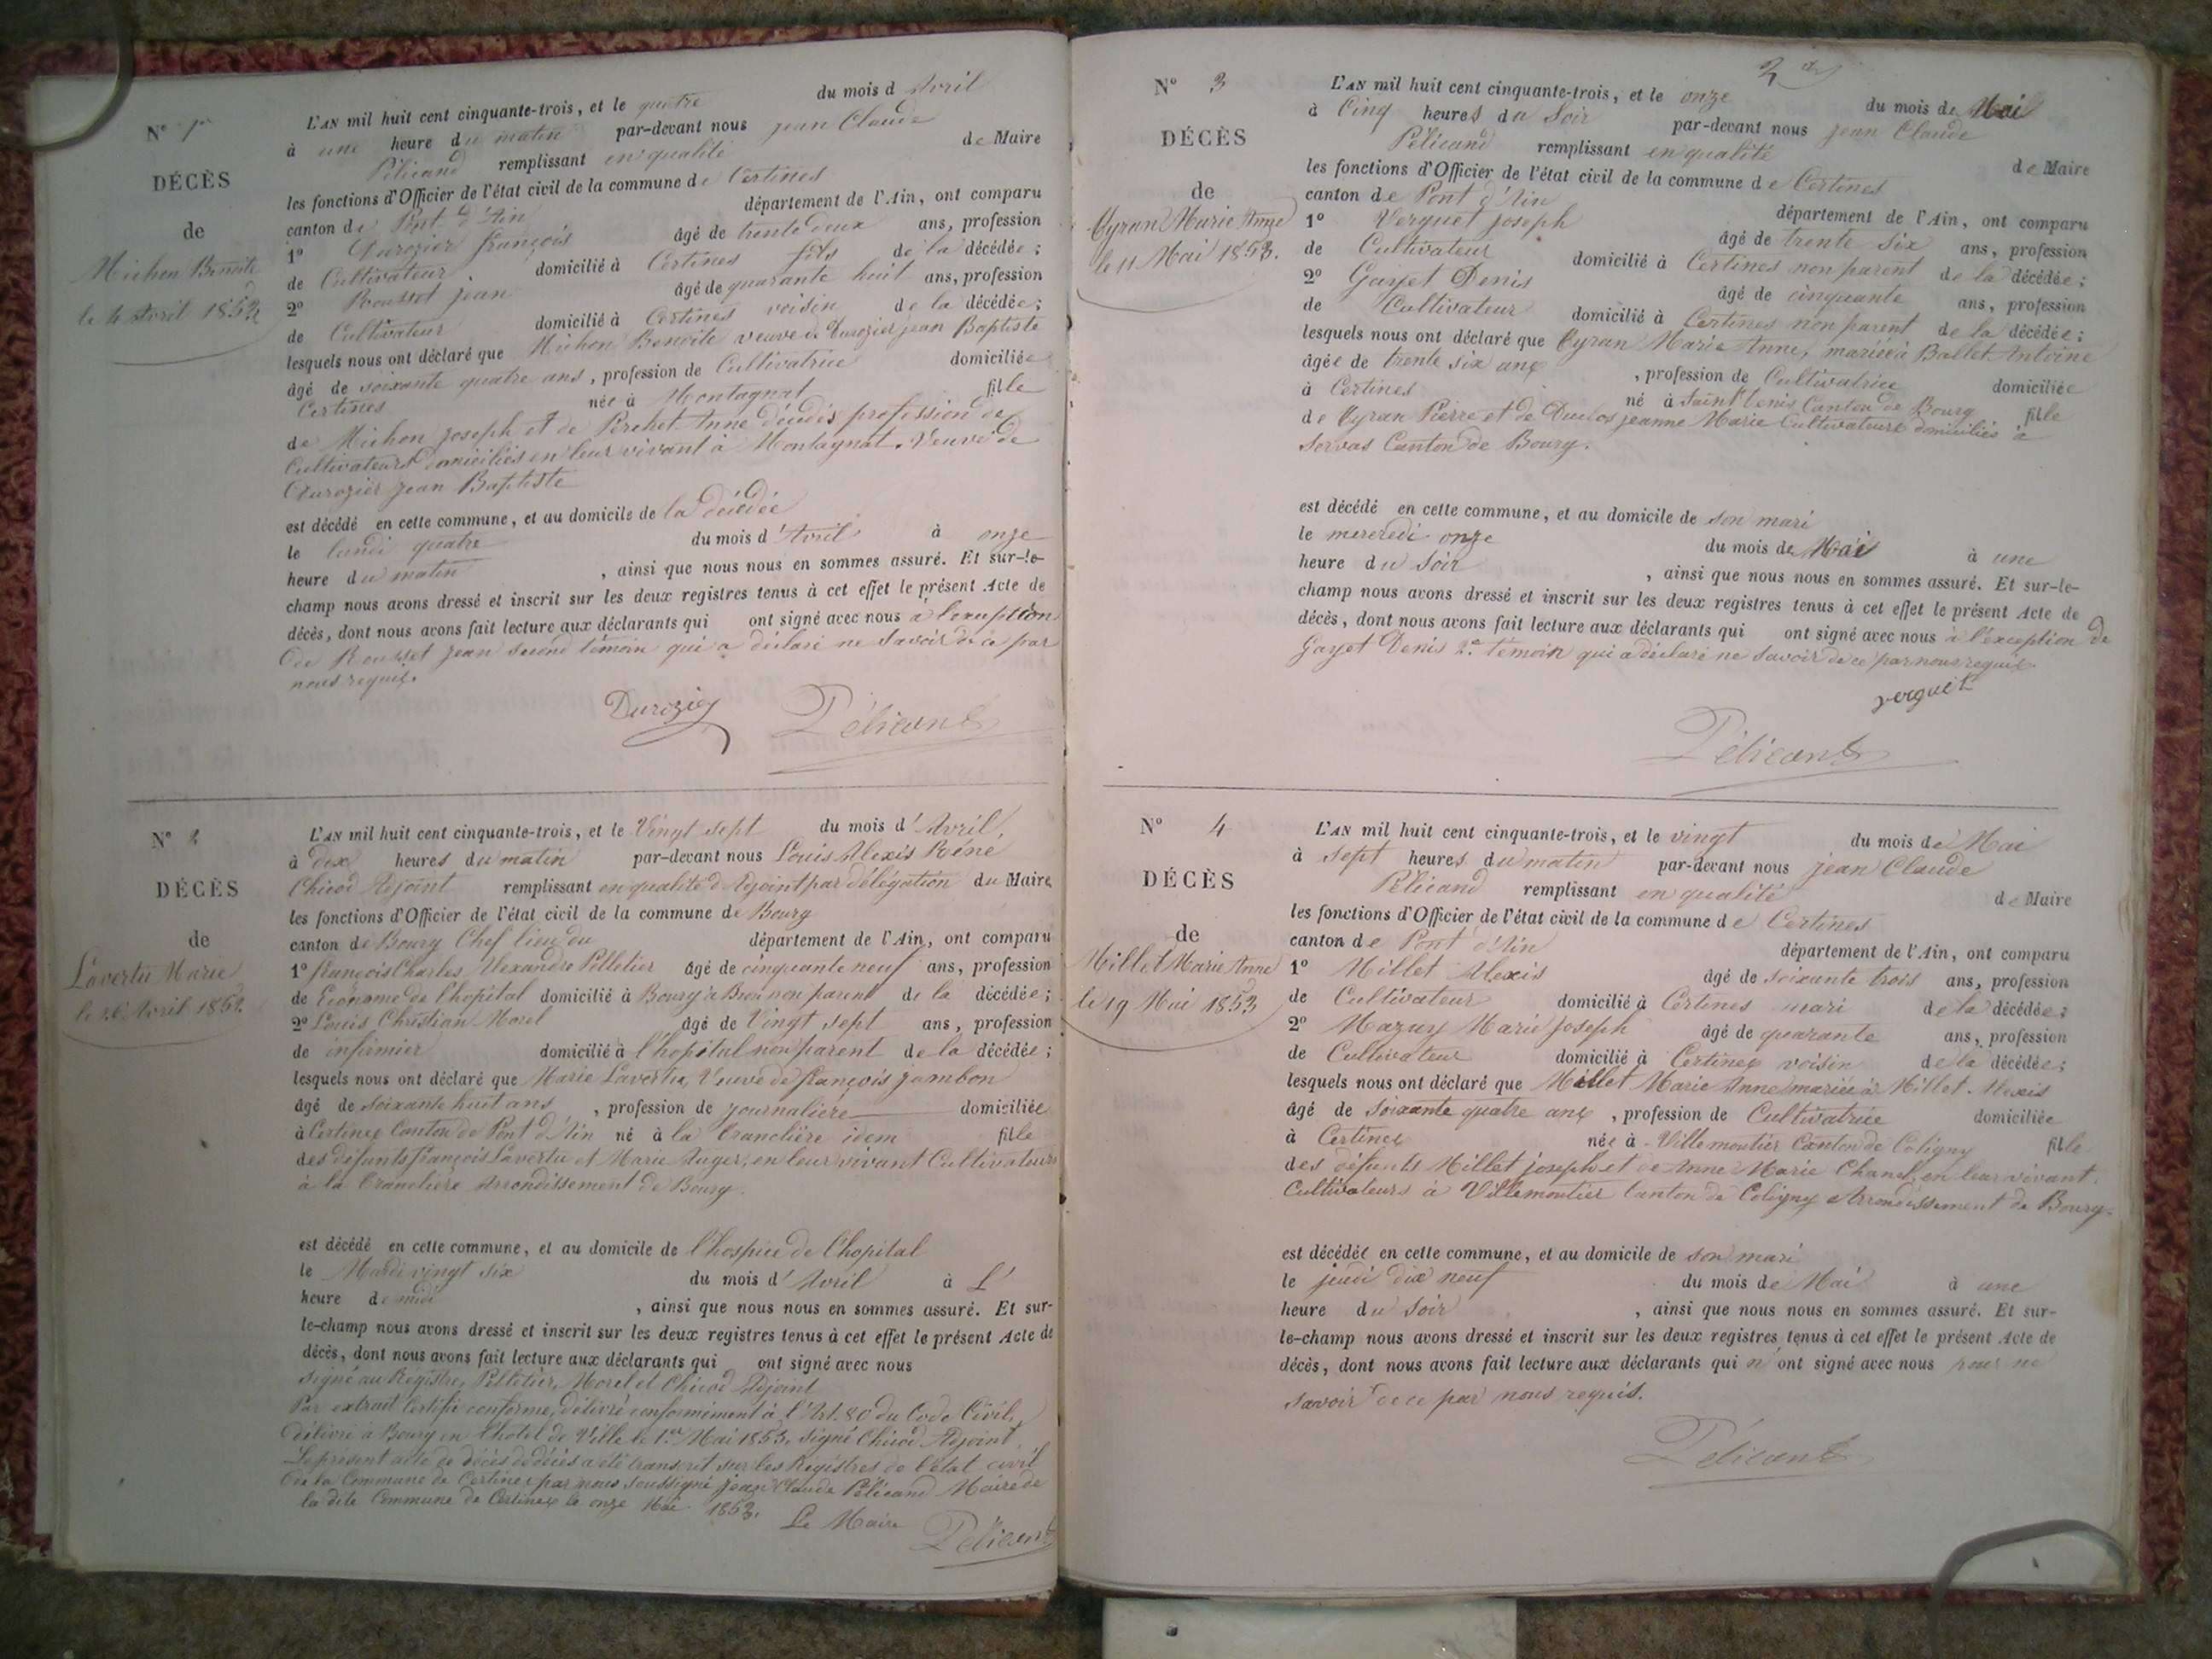 N° 1er
DÉCÈS
de
Michon Benoite
le 4 Avril 1853
L'AN mil huit cent cinquante-trois, et le quatre du mois d'Avril
à une heure du matin par-devant nous jean Claude
Pélicand remplissant en qualité de Maire
les fonctions d'Officier de l'état civil de la commune de Certines
canton de Pont d'Ain département de l'Ain, ont comparu
1° Durozier françois âgé de trente deux ans, profession
de Cultivateur domicilié à Certines fils de la décédée;
2° Rousset jean âgé de quarante huit ans, profession
de Cultivateur domicilié à Certines voisin de la décédée;
lesquels nous ont déclaré que Michon Benoite veuve de Durozier jean Baptiste
âgé de soixante quatre ans, profession de Cultivatrice domiciliée
Certines née à Montagnat fille
de Michon joseph et de Perchet Anne décédés profession de
Cultivateurs domiciliés en leur vivant à Montagnat. Veuve de
Durozier jean Baptiste
est décédé en cette commune, et au domicile de la décédée
le lundi quatre du mois d'Avril à onze
heure du matin, ainsi que nous nous en sommes assuré. Et sur-le-
champ nous avons dressé et inscrit sur les deux registres tenus à cet effet le présent Acte de
décès, dont nous avons fait lecture aux déclarants qui ont signé avec nous à l'exception
de Rousset jean second témoin qui a déclaré ne savoir de ce par
nous requis.
Durozier Pélicand
N° 2
DÉCÈS
de
Lavertu Marie
le 26 Avril 1853
L'AN mil huit cent cinquante-trois, et le Vingt sept du mois d'Avril,
à dix heures du matin par-devant nous Louis Alexis Réné
Chicod Adjoint remplissant en qualité d'Adjoint par délégation du Maire
les fonctions d'Officier de l'état civil de la commune de Bourg
canton de Bourg Chef lieu du département de l'Ain, ont comparu
1° françois Charles Alexandre Pelletier âgé de cinquante neuf ans, profession
de Econome de l'hopital domicilié à Bourg à Brou non parent de la décédée;
2° Louis Christian Morel âgé de Vingt sept ans, profession
de infirmier domicilié à l'hopital non parent de la décédée;
lesquels nous ont déclaré que Marie Lavertu, Veuve de françois jambon
âgé de soixante huit ans, profession de journalière domiciliée
à Certines Canton de Pont d'Ain né à la Tranclière idem fille
des défunts françois Lavertu et Marie Auger, en leur vivant Cultivateurs
à la Tranclière Arrondissement de Bourg.
est décédé en cette commune, et au domicile de l'hospice de l'hopital
le Mardi vingt six du mois d'Avril à L'
heure de midi, ainsi que nous nous en sommes assuré. Et sur-
le-champ nous avons dressé et inscrit sur les deux registres tenus à cet effet le présent Acte de
décès, dont nous avons fait lecture aux déclarants qui ont signé avec nous
signé au Régistre, Pelletier, Morel et Chicod Adjoint
Par extrait Certifié conforme, délivré conformément à l'Art. 80 du Code Civil,
délivré à Bourg en l'hotel de Ville le 1er Mai 1853. signé Chicod Adjoint
Le présent acte de décès de décès a été transcrit sur les Registres de l'état civil
de la Commune de Certines par nous soussigné jean Claude Pélicand Maire de
la dite Commune de Certines le onze Mai 1853.
Le Maire Pélicand
2
N° 3
DÉCÈS
de
Cyran Marie Anne
le 11 Mai 1853.
L'AN mil huit cent cinquante-trois, et le onze du mois de Mai
à Cinq heures du Soir par-devant nous jean Claude
Pélicand remplissant en qualité de Maire
les fonctions d'Officier de l'état civil de la commune de Certines
canton de Pont d'Ain département de l'Ain, ont comparu
1° Verguet joseph âgé de trente six ans, profession
de Cultivateur domicilié à Certines non parent de la décédée;
2° Gayet Denis âgé de cinquante ans, profession
de Cultivateur domicilié à Certines non parent de la décédée;
lesquels nous ont déclaré que Cyran Marie Anne, mariée à Ballet Antoine
âgée de trente six ans, profession de Cultivatrice domiciliée
à Certines né à Saint Denis Canton de Bourg fille
de Cyran Pierre et de Duclos jeanne Marie Cultivateurs domiciliés à
Servas Canton de Bourg.
est décédé en cette commune, et au domicile de son mari
le mercredi onze du mois de Mai à une
heure du Soir, ainsi que nous nous en sommes assuré. Et sur-le-
champ nous avons dressé et inscrit sur les deux registres tenus à cet effet le présent Acte de
décès, dont nous avons fait lecture aux déclarants qui ont signé avec nous à l'exception de
Gayet Denis 2e témoin qui a déclaré ne savoir de ce par nous requis.
verguet
Pélicand
N° 4
DÉCÈS
de
Millet Marie Anne
le 19 Mai 1853
L'AN mil huit cent cinquante-trois, et le vingt du mois de Mai
à sept heures du matin par-devant nous jean Claude
Pélicand remplissant en qualité de Maire
les fonctions d'Officier de l'état civil de la commune de Certines
canton de Pont d'Ain département de l'Ain, ont comparu
1° Millet Alexis âgé de soixante trois ans, profession
de Cultivateur domicilié à Certines mari de la décédée;
2° Mazuy Marie joseph âgé de quarante ans, profession
de Cultivateur domicilié à Certines voisin de la décédée;
lesquels nous ont déclaré que Millet Marie Anne mariée à Millet Alexis
âgé de soixante quatre ans, profession de Cultivatrice domiciliée
à Certines née à Villemoutier Canton de Coligny fille
des défunts Millet joseph et de Anne Marie Chanel, en leur vivant
Cultivateurs à Villemoutier Canton de Coligny Arrondissement de Bourg.
est décédée en cette commune, et au domicile de son mari
le jeudi dix neuf du mois de Mai à une
heure du Soir, ainsi que nous nous en sommes assuré. Et sur-
le-champ nous avons dressé et inscrit sur les deux registres tenus à cet effet le présent Acte de
décès, dont nous avons fait lecture aux déclarants qui n'ont signé avec nous pour ne
savoir de ce par nous requis.
Pélicand